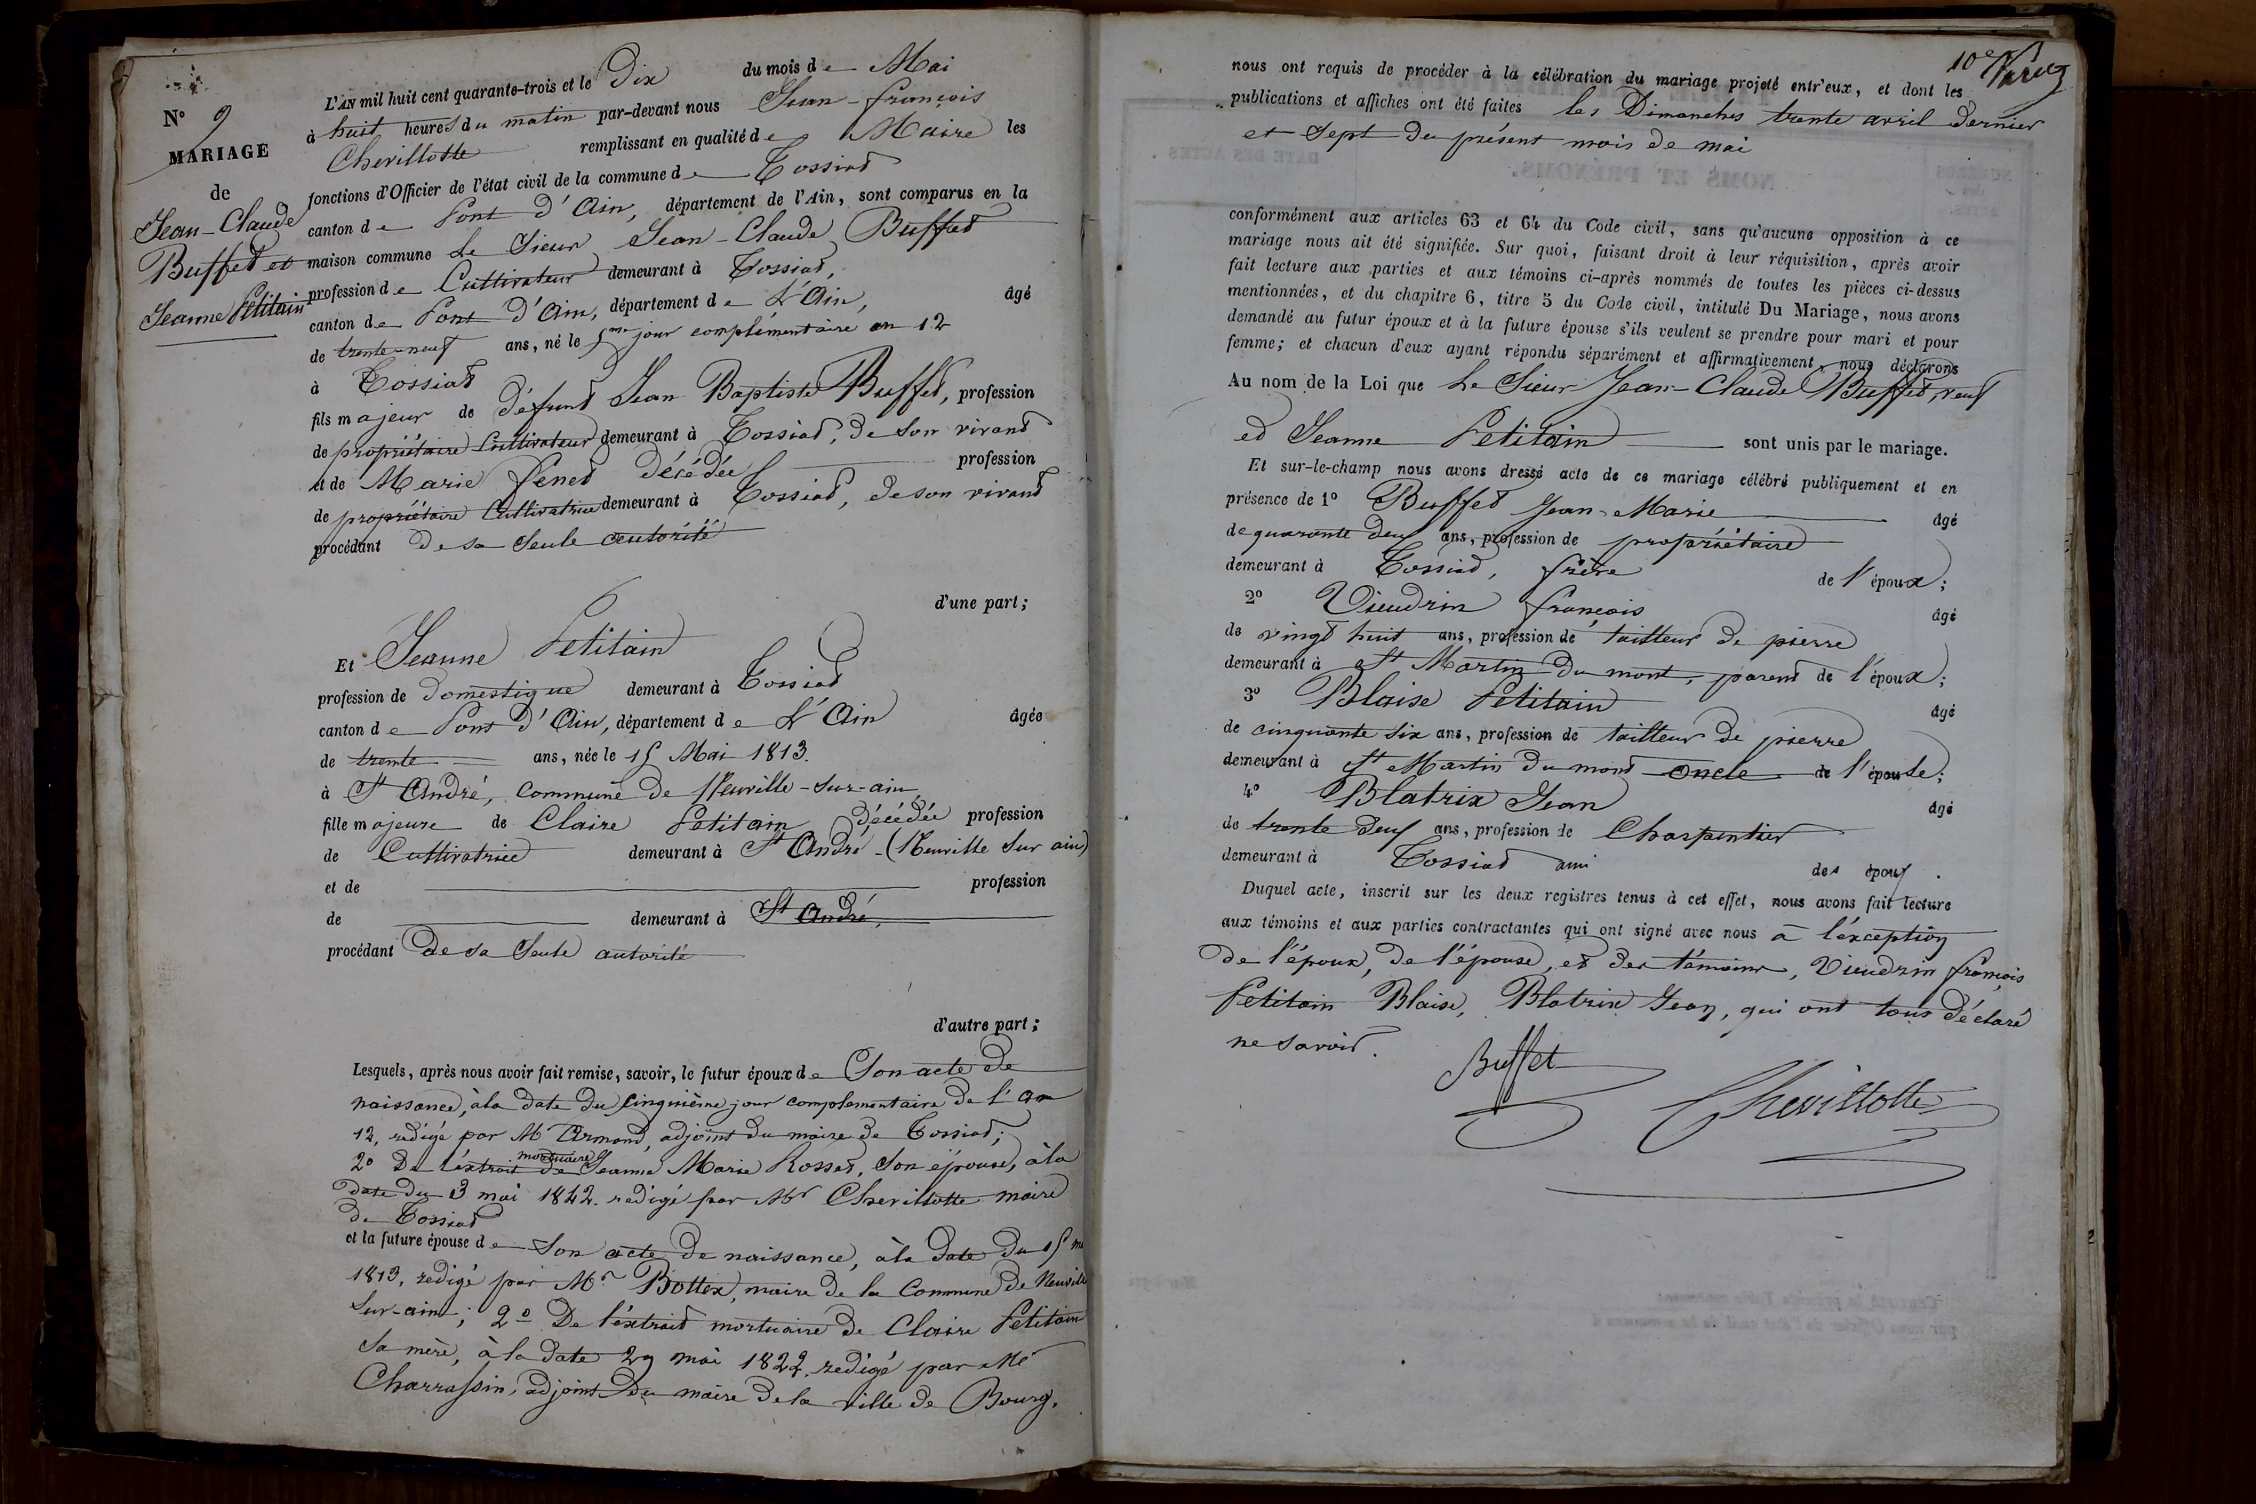 N° 9
MARIAGE
de
Jean-Claude
Buffet et
Jeanne Petitain
L'AN mil huit cent quarante-trois et le Dix du mois de Mai
à huit heures du matin par-devant nous Jean-françois
Chevillotte remplissant en qualité de Maire les
fonctions d'Officier de l'état civil de la commune de Tossiat
canton de Pont d'Ain, département de l'Ain, sont comparus en la
maison commune Le Sieur Jean-Claude Buffet
profession de Cultivateur demeurant à Tossiat,
canton de Pont d'Ain, département de L'Ain, âgé
de trente-neuf ans, né le 5me jour complémentaire an 12
à Tossiat
fils majeur de défunt Jean Baptiste Buffet, profession
de propriétaire Cultivateur demeurant à Tossiat, de son vivant
et de Marie fénet décédée profession
de propriétaire Cultivatrice demeurant à Tossiat, de son vivant
procédant de sa seule autorité
d'une part;
Et Jeanne Petitain
profession de domestique demeurant à Tossiat
canton de Pont d'Ain, département de L'Ain âgée
de trente ans, née le 15 Mai 1813.
à St André, commune de Neuville-sur-ain
fille majeure de Claire Petitain décédée profession
de Cultivatrice demeurant à St André-(Neuville sur ain)
et de profession
de demeurant à St André,
procédant de sa seule autorité
d'autre part;
Lesquels, après nous avoir fait remise, savoir, le futur époux de Son acte de
naissance, à la date du cinquième jour complementaire de l'an
12, redigé par Mr Armand, adjoint du maire de Tossiat;
2° De l'éxtrait mortuaire de Jeanne Marie Rosset, son épouse, à la
date du 3 mai 1842. redigé par Mr Chevillotte maire
de Tossiat
et la future épouse de Son acte de naissance, à la date du 15 m
1813, redigé par Mr Bottex, maire de la Commune de Neuville
sur-ain; 2° De l'éxtrait mortuaire de Claire Petitain
sa mère, à la date 29 mai 1822. redigé par Mr
Charrassin, adjoint du maire de la ville de Bourg.
10e
nous ont requis de procéder à la célébration du mariage projeté entr'eux, et dont les
publications et affiches ont été faites les Dimanches trente avril dernier
et sept du présent mois de mai
conformément aux articles 63 et 64 du Code civil, sans qu'aucune opposition à ce
mariage nous ait été signifiée. Sur quoi, faisant droit à leur réquisition, après avoir
fait lecture aux parties et aux témoins ci-après nommés de toutes les pièces ci-dessus
mentionnées, et du chapitre 6, titre 5 du Code civil, intitulé Du Mariage, nous avons
demandé au futur époux et à la future épouse s'ils veulent se prendre pour mari et pour
femme; et chacun d'eux ayant répondu séparément et affirmativement, nous déclarons
Au nom de la Loi que Le Sieur Jean-Claude Buffet, veuf
et Jeanne Petitain sont unis par le mariage.
Et sur-le-champ nous avons dressé acte de ce mariage célébré publiquement et en
présence de 1° Buffet Jean-Marie âgé
de quarante deux ans, profession de propriétaire
demeurant à Tossiat, frère de l'époux;
2° Vieudrin françois âgé
de vingt huit ans, profession de tailleur de pierre
demeurant à St Martin du mont, parent de l'époux;
3° Blaise Petitain âgé
de cinquante six ans, profession de tailleur de pierre
demeurant à St Martin du mont oncle de l'épouse;
4° Blatrix Jean âgé
de trente deux ans, profession de Charpentier
demeurant à Tossiat ami des époux.
Duquel acte, inscrit sur les deux registres tenus à cet effet, nous avons fait lecture
aux témoins et aux parties contractantes qui ont signé avec nous à l'éxception
de l'époux, de l'épouse, et des témoins, Vieudrin françois
Petitain Blaise, Blatrix Jean, qui ont tous déclaré
ne savoir.
Buffet
Chevillotte